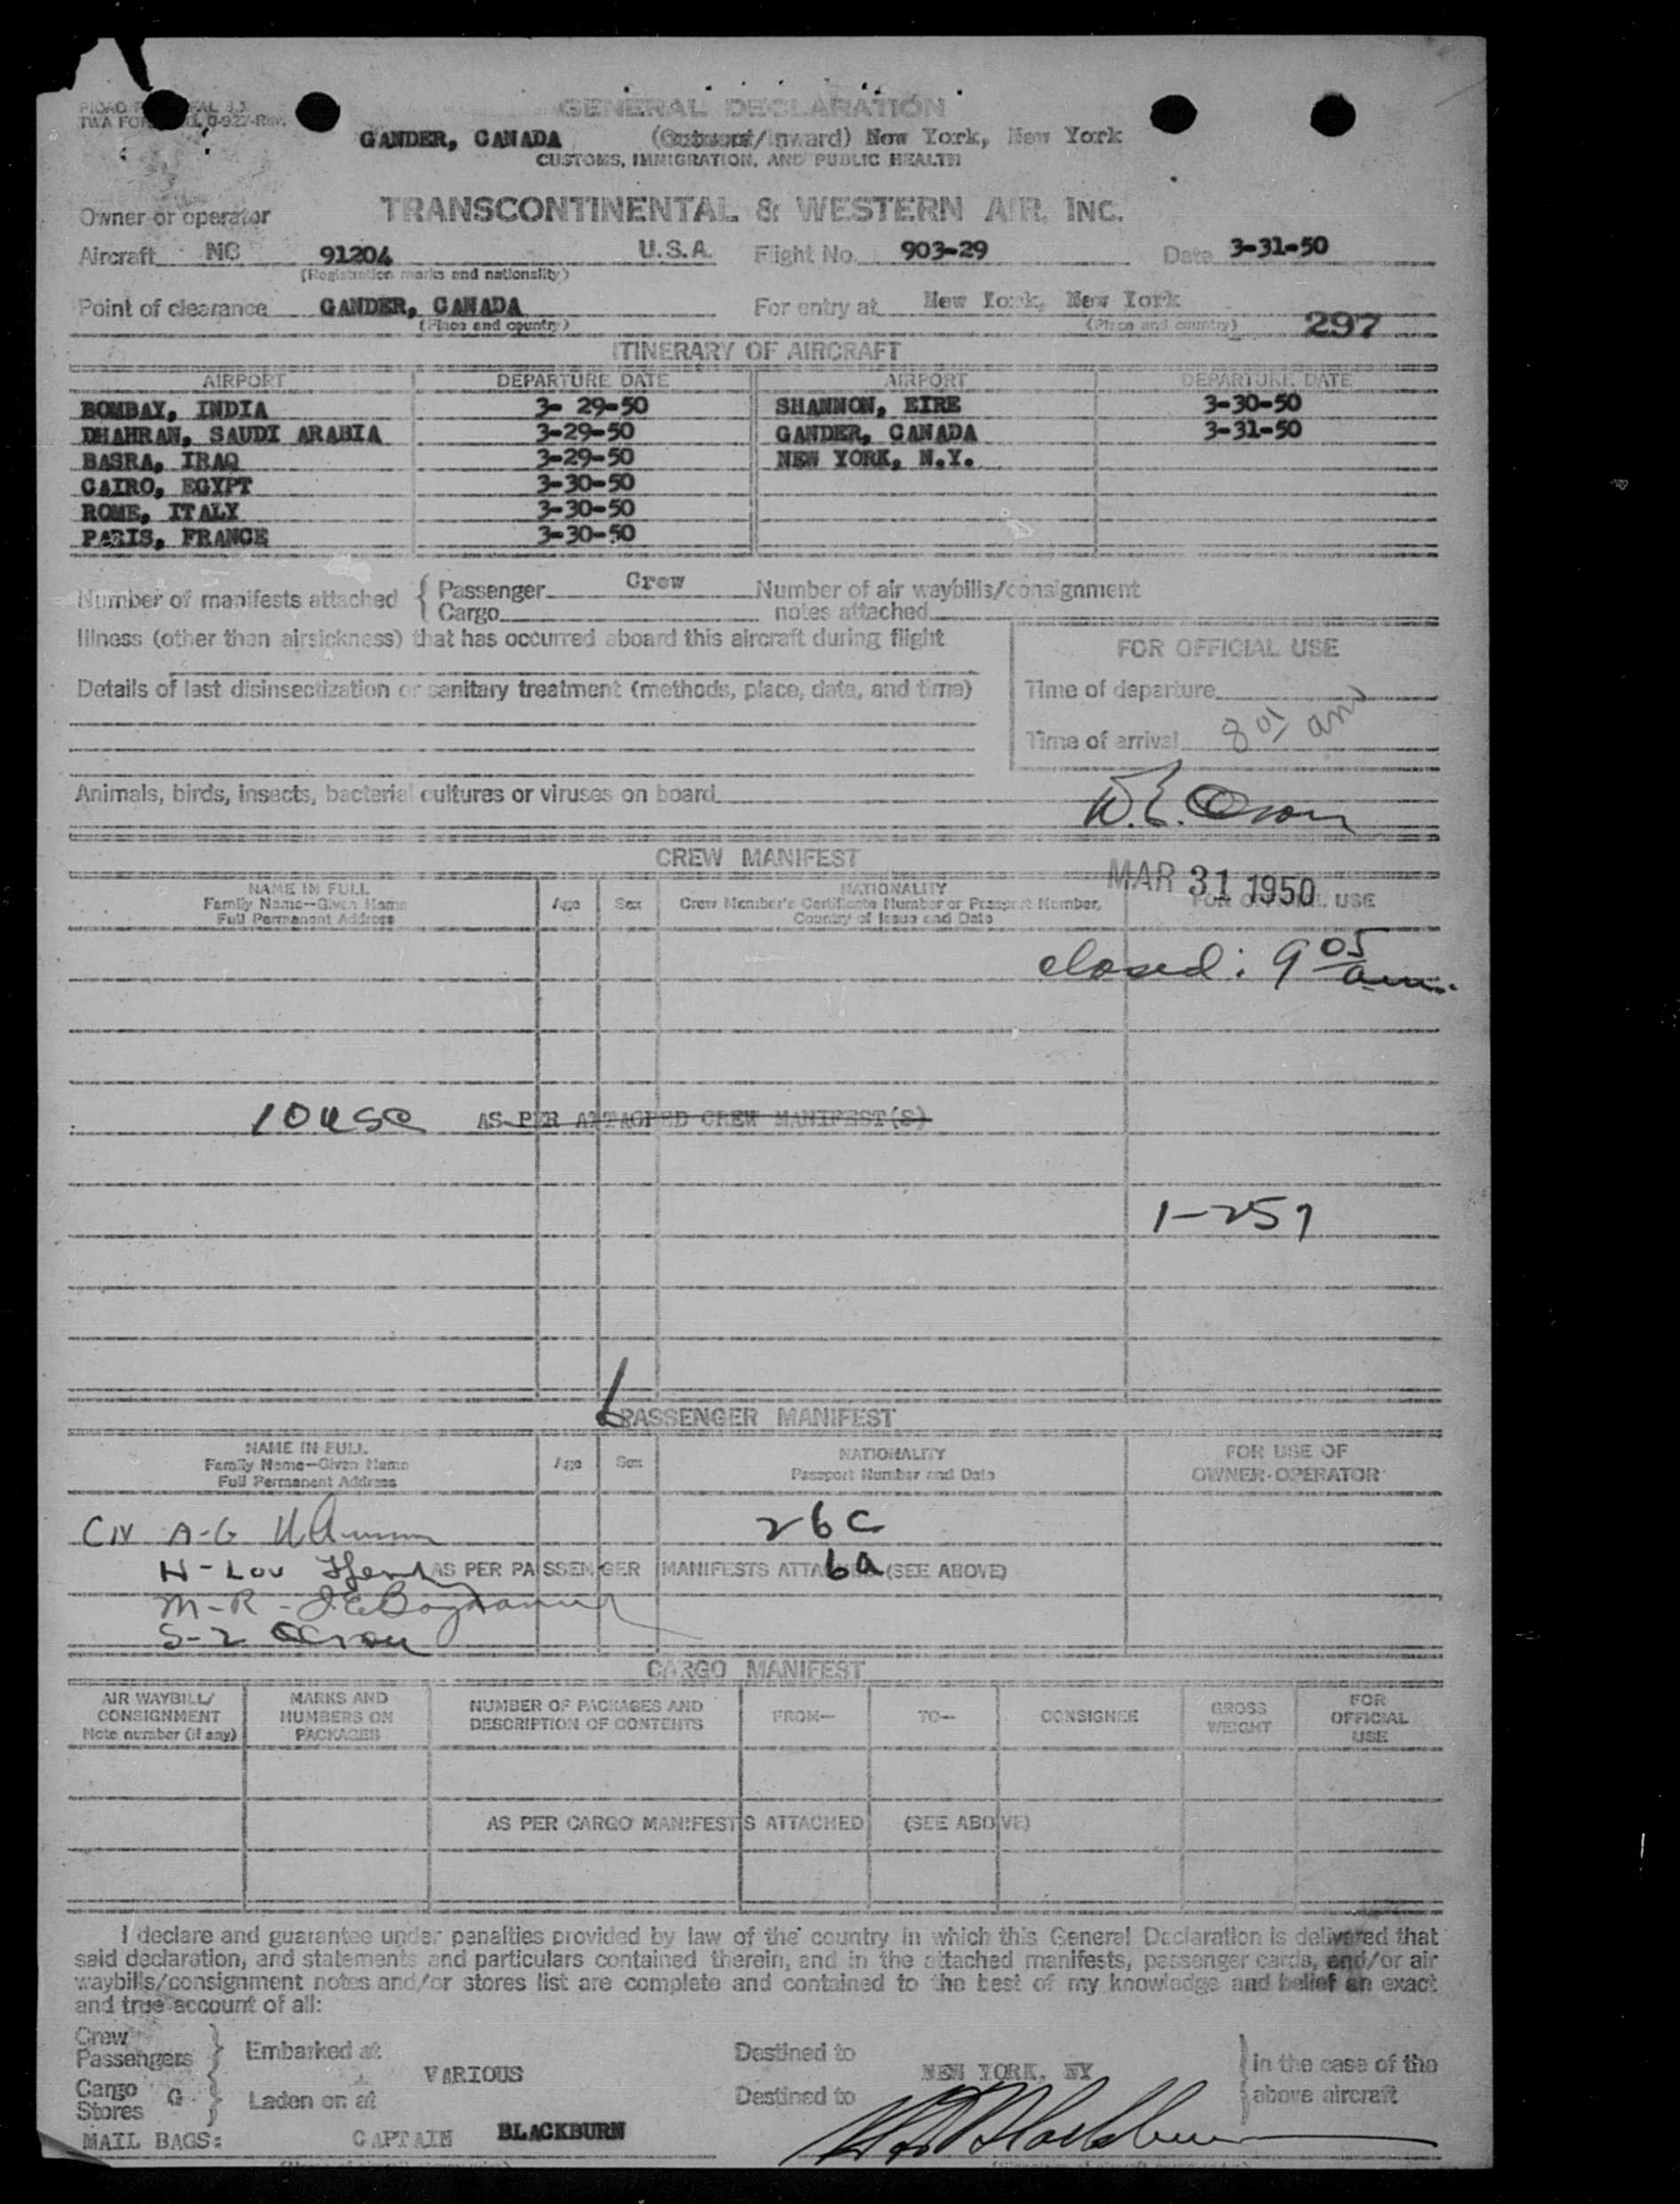 TWA FOR
GENERAL DECLARATION
GANDER, CANADA (Outward/Inward) New York, New York
CUSTOMS, IMMIGRATION, AND PUBLIC HEALTH
Owner or operator TRANSCONTINENTAL & WESTERN AIR, INC.
Aircraft NC 91204 U.S.A. Flight No. 903-29 Date 3-31-50
(Registration marks and nationality)
Point of clearance GANDER, CANADA For entry at New York, New York
(Place and country) (Place and country) 297
ITINERARY OF AIRCRAFT
AIRPORT DEPARTURE DATE AIRPORT DEPARTURE DATE
BOMBAY, INDIA 3- 29-50 SHANNON, EIRE 3-30-50
DHAHRAN, SAUDI ARABIA 3-29-50 GANDER, CANADA 3-31-50
BASRA, IRAQ 3-29-50 NEW YORK, N.Y.
CAIRO, EGYPT 3-30-50
ROME, ITALY 3-30-50
PARIS, FRANCE 3-30-50
Number of manifests attached { Passenger Crew Number of air waybills/consignment
Cargo notes attached
Illness (other than airsickness) that has occurred aboard this aircraft during flight
FOR OFFICIAL USE
Details of last disinsectization or sanitary treatment (methods, place, date, and time)
Time of departure
Time of arrival 8 01 am
Animals, birds, insects, bacterial cultures or viruses on board
CREW MANIFEST
MAR 31 1950
NAME IN FULL Age Sex NATIONALITY FOR OFFICIAL USE
Family Name--Given Name Crew Member's Certificate Number or Passport Number,
Full Permanent Address Country of Issue and Date
closed: 9 05 am.
10 usc AS PER ATTACHED CREW MANIFEST(S)
1-257
PASSENGER MANIFEST
NAME IN FULL Age Sex NATIONALITY FOR USE OF
Family Name--Given Name Passport Number and Date OWNER-OPERATOR
Full Permanent Address
26 C
AS PER PASSENGER MANIFESTS ATTA 6a (SEE ABOVE)
M-R
S-2
CARGO MANIFEST
AIR WAYBILL/ MARKS AND NUMBER OF PACKAGES AND FROM-- TO-- CONSIGNEE GROSS FOR
CONSIGNMENT NUMBERS ON DESCRIPTION OF CONTENTS WEIGHT OFFICIAL
Note number (if any) PACKAGES USE
AS PER CARGO MANIFESTS ATTACHED (SEE ABOVE)
I declare and guarantee under penalties provided by law of the country in which this General Declaration is delivered that
said declaration, and statements and particulars contained therein, and in the attached manifests, passenger cards, and/or air
waybills/consignment notes and/or stores list are complete and contained to the best of my knowledge and belief an exact
and true account of all:
Crew Embarked at Destined to in the case of the
Passengers VARIOUS NEW YORK, NY
Cargo G Laden on at Destined to above aircraft
Stores
MAIL BAGS: CAPTAIN BLACKBURN